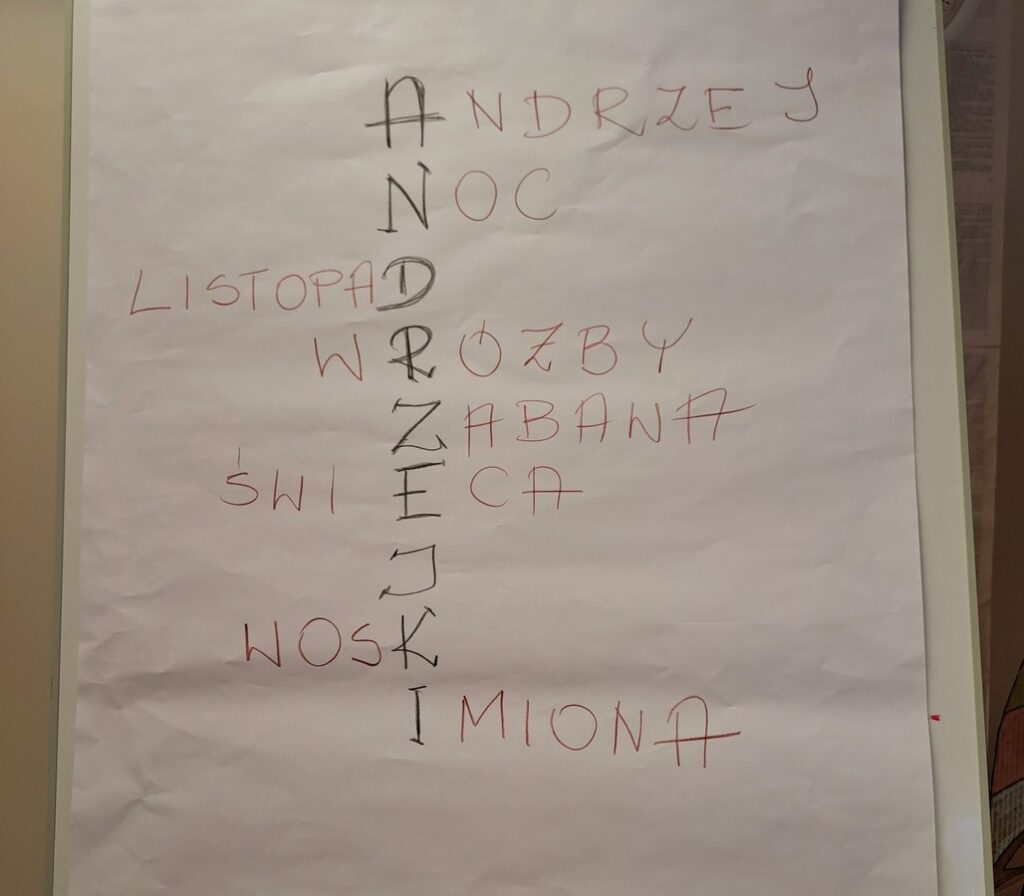 ANDRZEJ
NOC
LISTOPAD
WRÓŻBY
ZABAWA
ŚWIECA
J
WOSK
IMIONA